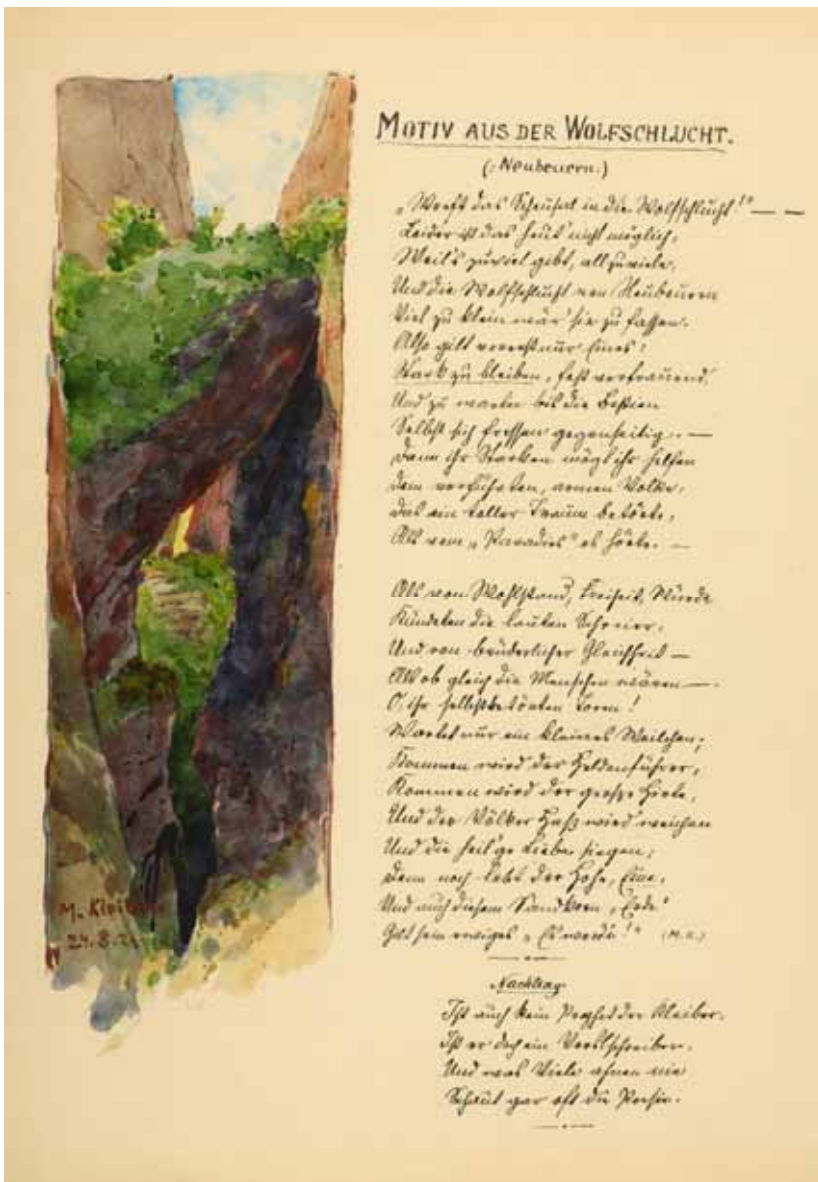 MOTIV AUS DER WOLFSCHLUCHT.
(: Neubeuern.)
„Werft das Scheusal in die Wolfsschlucht!" — —
Leider ist das heut' nicht möglich,
Weil's zuviel gibt, allzuviele,
Und die Wolfsschlucht von Neubeuern
Viel zu klein wär' sie zu fassen.
Also gilt vorerst nur Eines:
Stark zu bleiben, fest vertrauend.
Und zu warten bis die Bestien
Selbst sich fressen gegenseitig. —
Dann ihr Starken mögt ihr helfen
Dem verführten, armen Volke,
Das ein toller Traum betörte,
Als vom „Paradies" es hörte. —
Als von Wohlstand, Freiheit, Würde
Kündeten die lauten Schreier,
Und von brüderlicher Gleichheit —
Als ob gleich die Menschen wären —.
O, ihr selbstbetörten Toren!
Wartet nur ein kleines Weilchen;
Kommen wird der Heldenführer,
Kommen wird der große Hirte,
Und der Völker Haß wird weichen
Und die heil'ge Liebe siegen;
Denn noch lebt der Hohe, Eine,
Und auch diesem Sandkorn „Erde"
Gilt sein ewiges „Es werde!" (M. K.)
Nachtrag
Ist auch kein Prophet der Kleiber,
Ist er doch ein Versl'schreiber.
Und was Viele ahnen nie
Schaut gar oft die Poesie.
M. Kleiber
24.8.